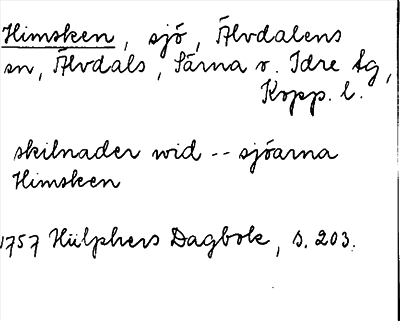 Himsken, sjö, Älvdalens
sn, Älvdals, Särna o. Idre tg,
Kopp. l.
skilnader wid -- sjöarna
Himsken
1757 Hülphers Dagbok, s. 203.